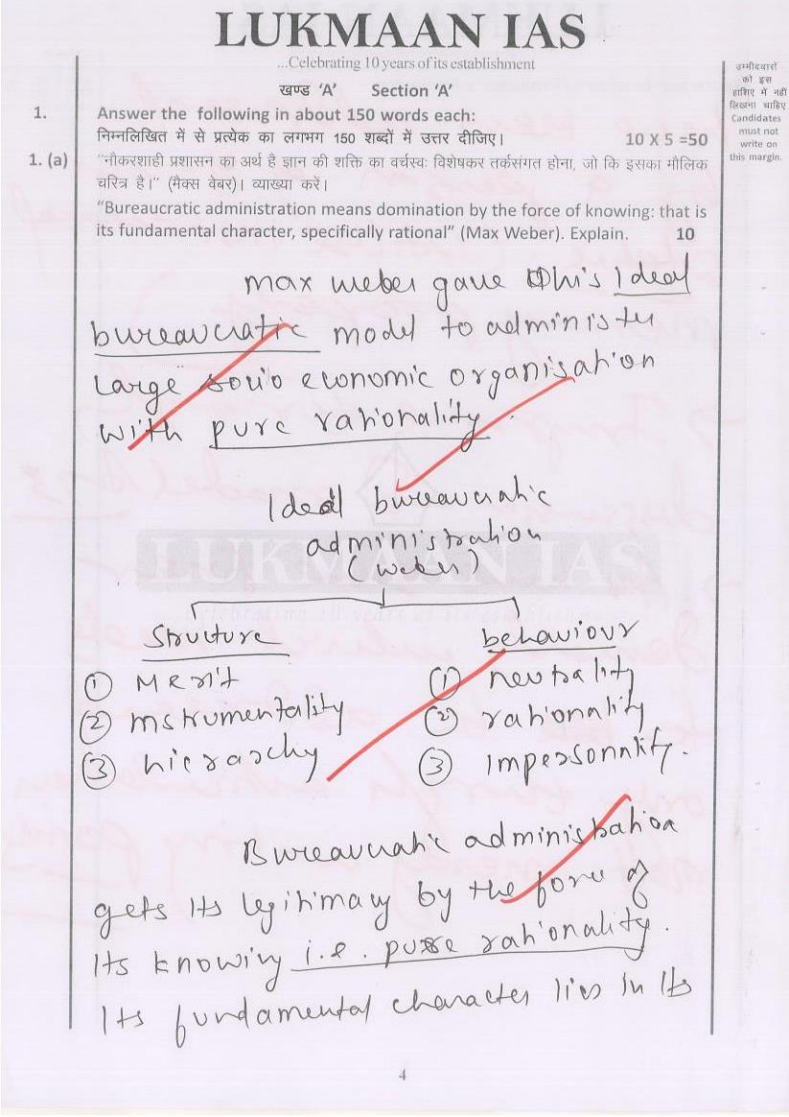 LUKMAAN IAS
...Celebrating 10 years of its establishment
खण्ड 'A' Section 'A'
उम्मीदवारों
को इस
हाशिए में नहीं
लिखना चाहिए
Candidates
must not
write on
this margin.
1. Answer the following in about 150 words each:
निम्नलिखित में से प्रत्येक का लगभग 150 शब्दों में उत्तर दीजिए। 10 X 5 =50
1. (a) "नौकरशाही प्रशासन का अर्थ है ज्ञान की शक्ति का वर्चस्वः विशेषकर तर्कसंगत होना, जो कि इसका मौलिक
चरित्र है।" (मैक्स वेबर)। व्याख्या करें।
"Bureaucratic administration means domination by the force of knowing: that is
its fundamental character, specifically rational" (Max Weber). Explain. 10
max weber gave his Ideal
bureaucratic model to administer
large socio economic organisation
with pure rationality.
Ideal bureaucratic
administration
(weber)
LUKMAAN IAS
Structure behaviour
① Merit ① neutrality
② Instrumentality ② rationality
③ hierarchy ③ Impersonality.
Bureaucratic administration
gets its legitimacy by the force of
its knowing i.e. pure rationality.
Its fundamental character lies in its
4